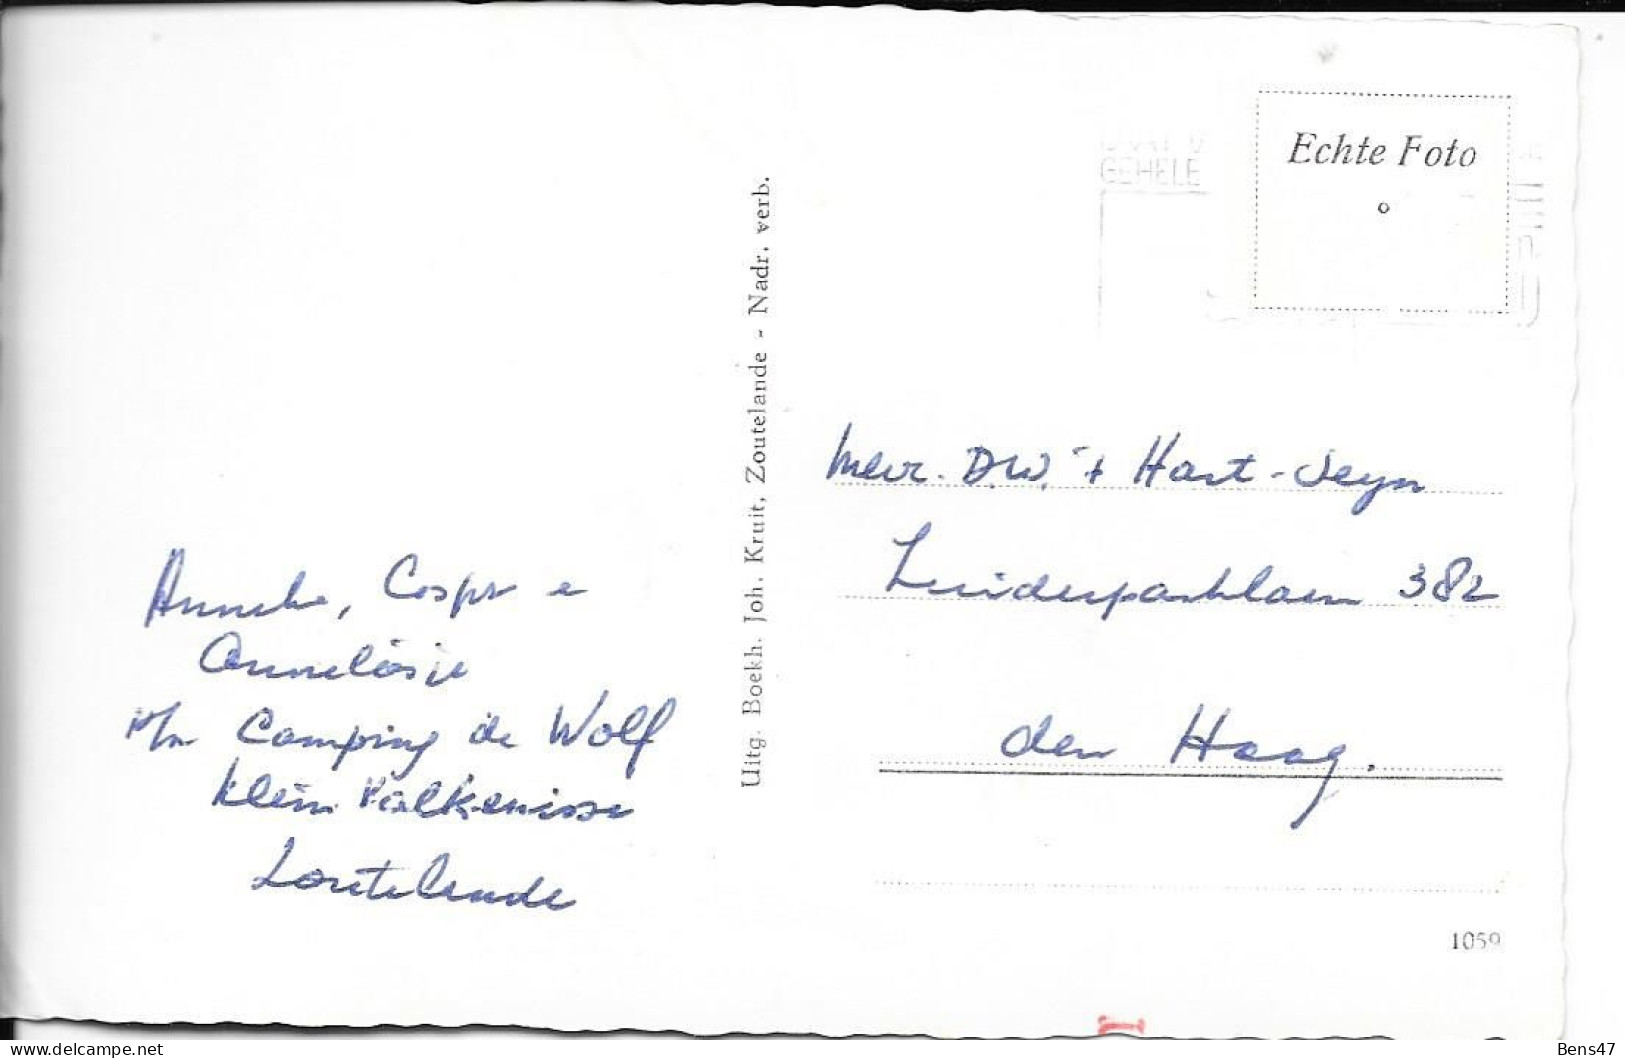 GEHELE
Echte Foto
Uitg. Boekh. Joh. Kruit, Zoutelande - Nadr. verb.
Mevr. D.W. 't Hart-Seyn
382
den Haag.
Anneke, Caspar e
Anneloesje
Camping de Wolf
Klein Valkenisse
Zoutelande
1059
delcampe.net
Bens47